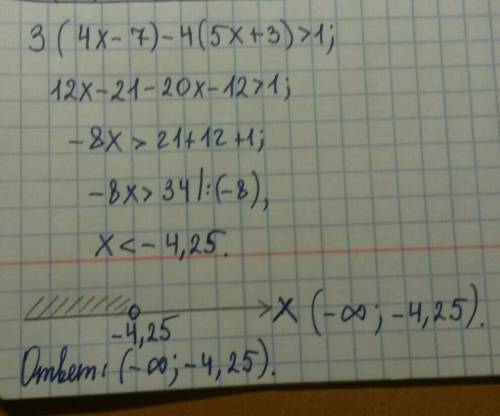 3(4x-7)-4(5x+3)>1;
12x-21-20x-12>1;
-8x>21+12+1;
-8x>34|:(-8),
x<-4,25.
-4,25 X (-∞;-4,25).
Ответ: (-∞;-4,25).